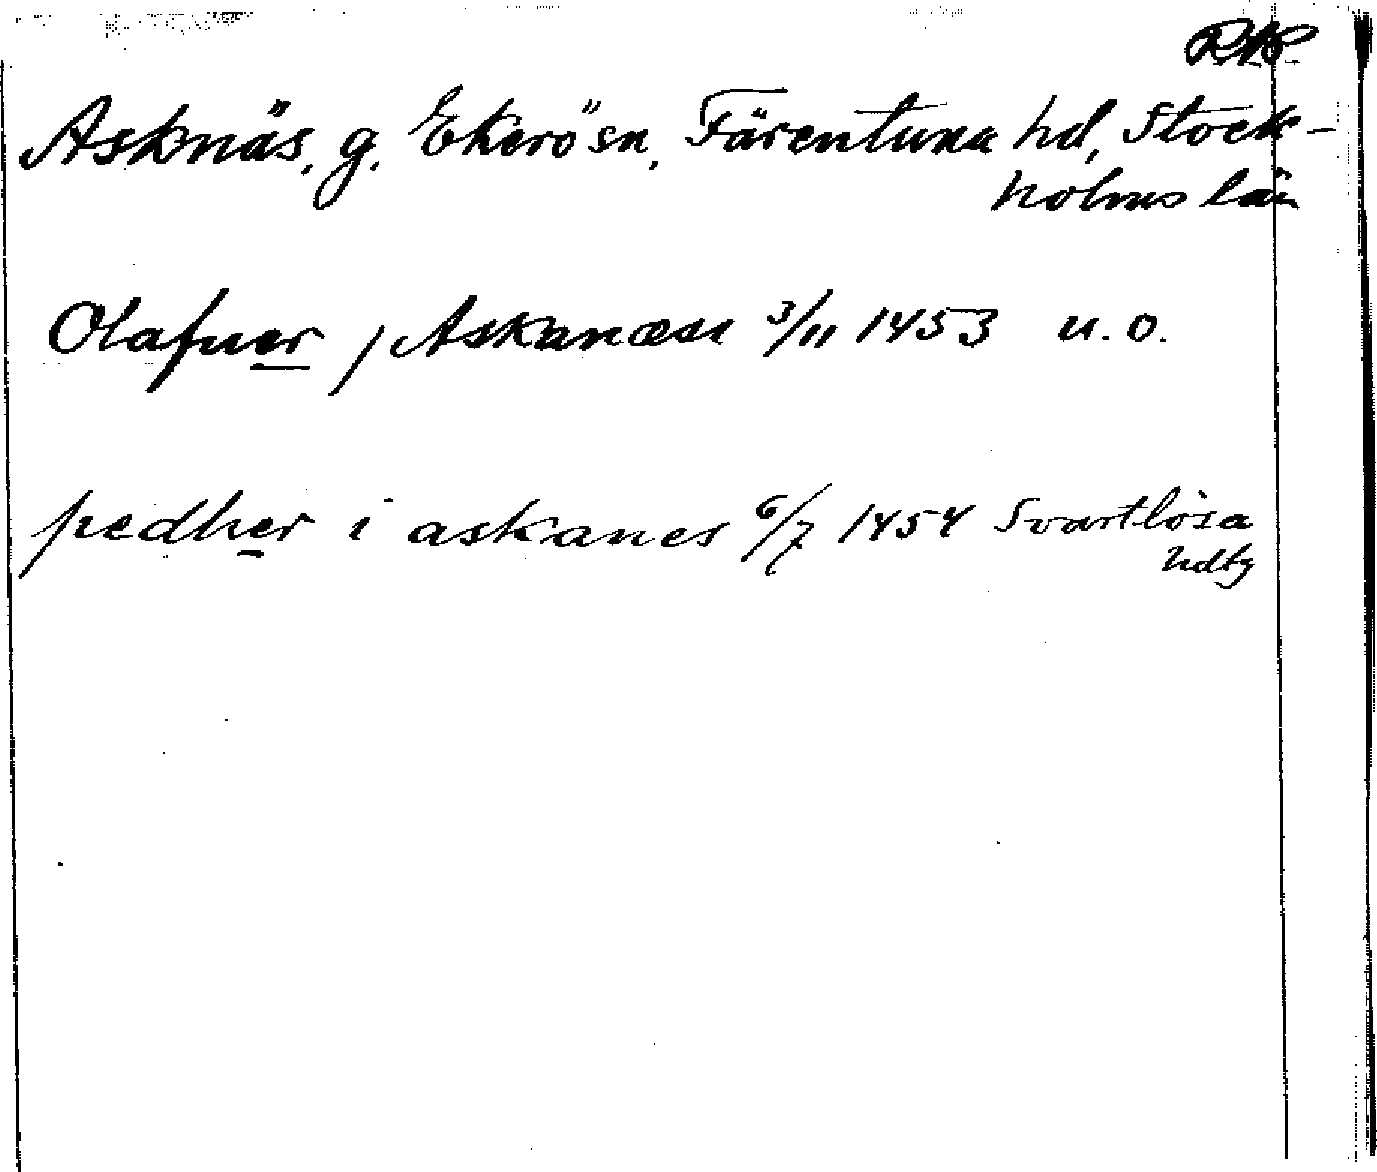 RAP
Asknäs, g. Ekerö sn, Färentuna hd, Stock-
holms län
Olafuer j Askanæss 3/11 1453 u. o.
pedher i askanes 6/7 1454 Svartlösa
hdtg